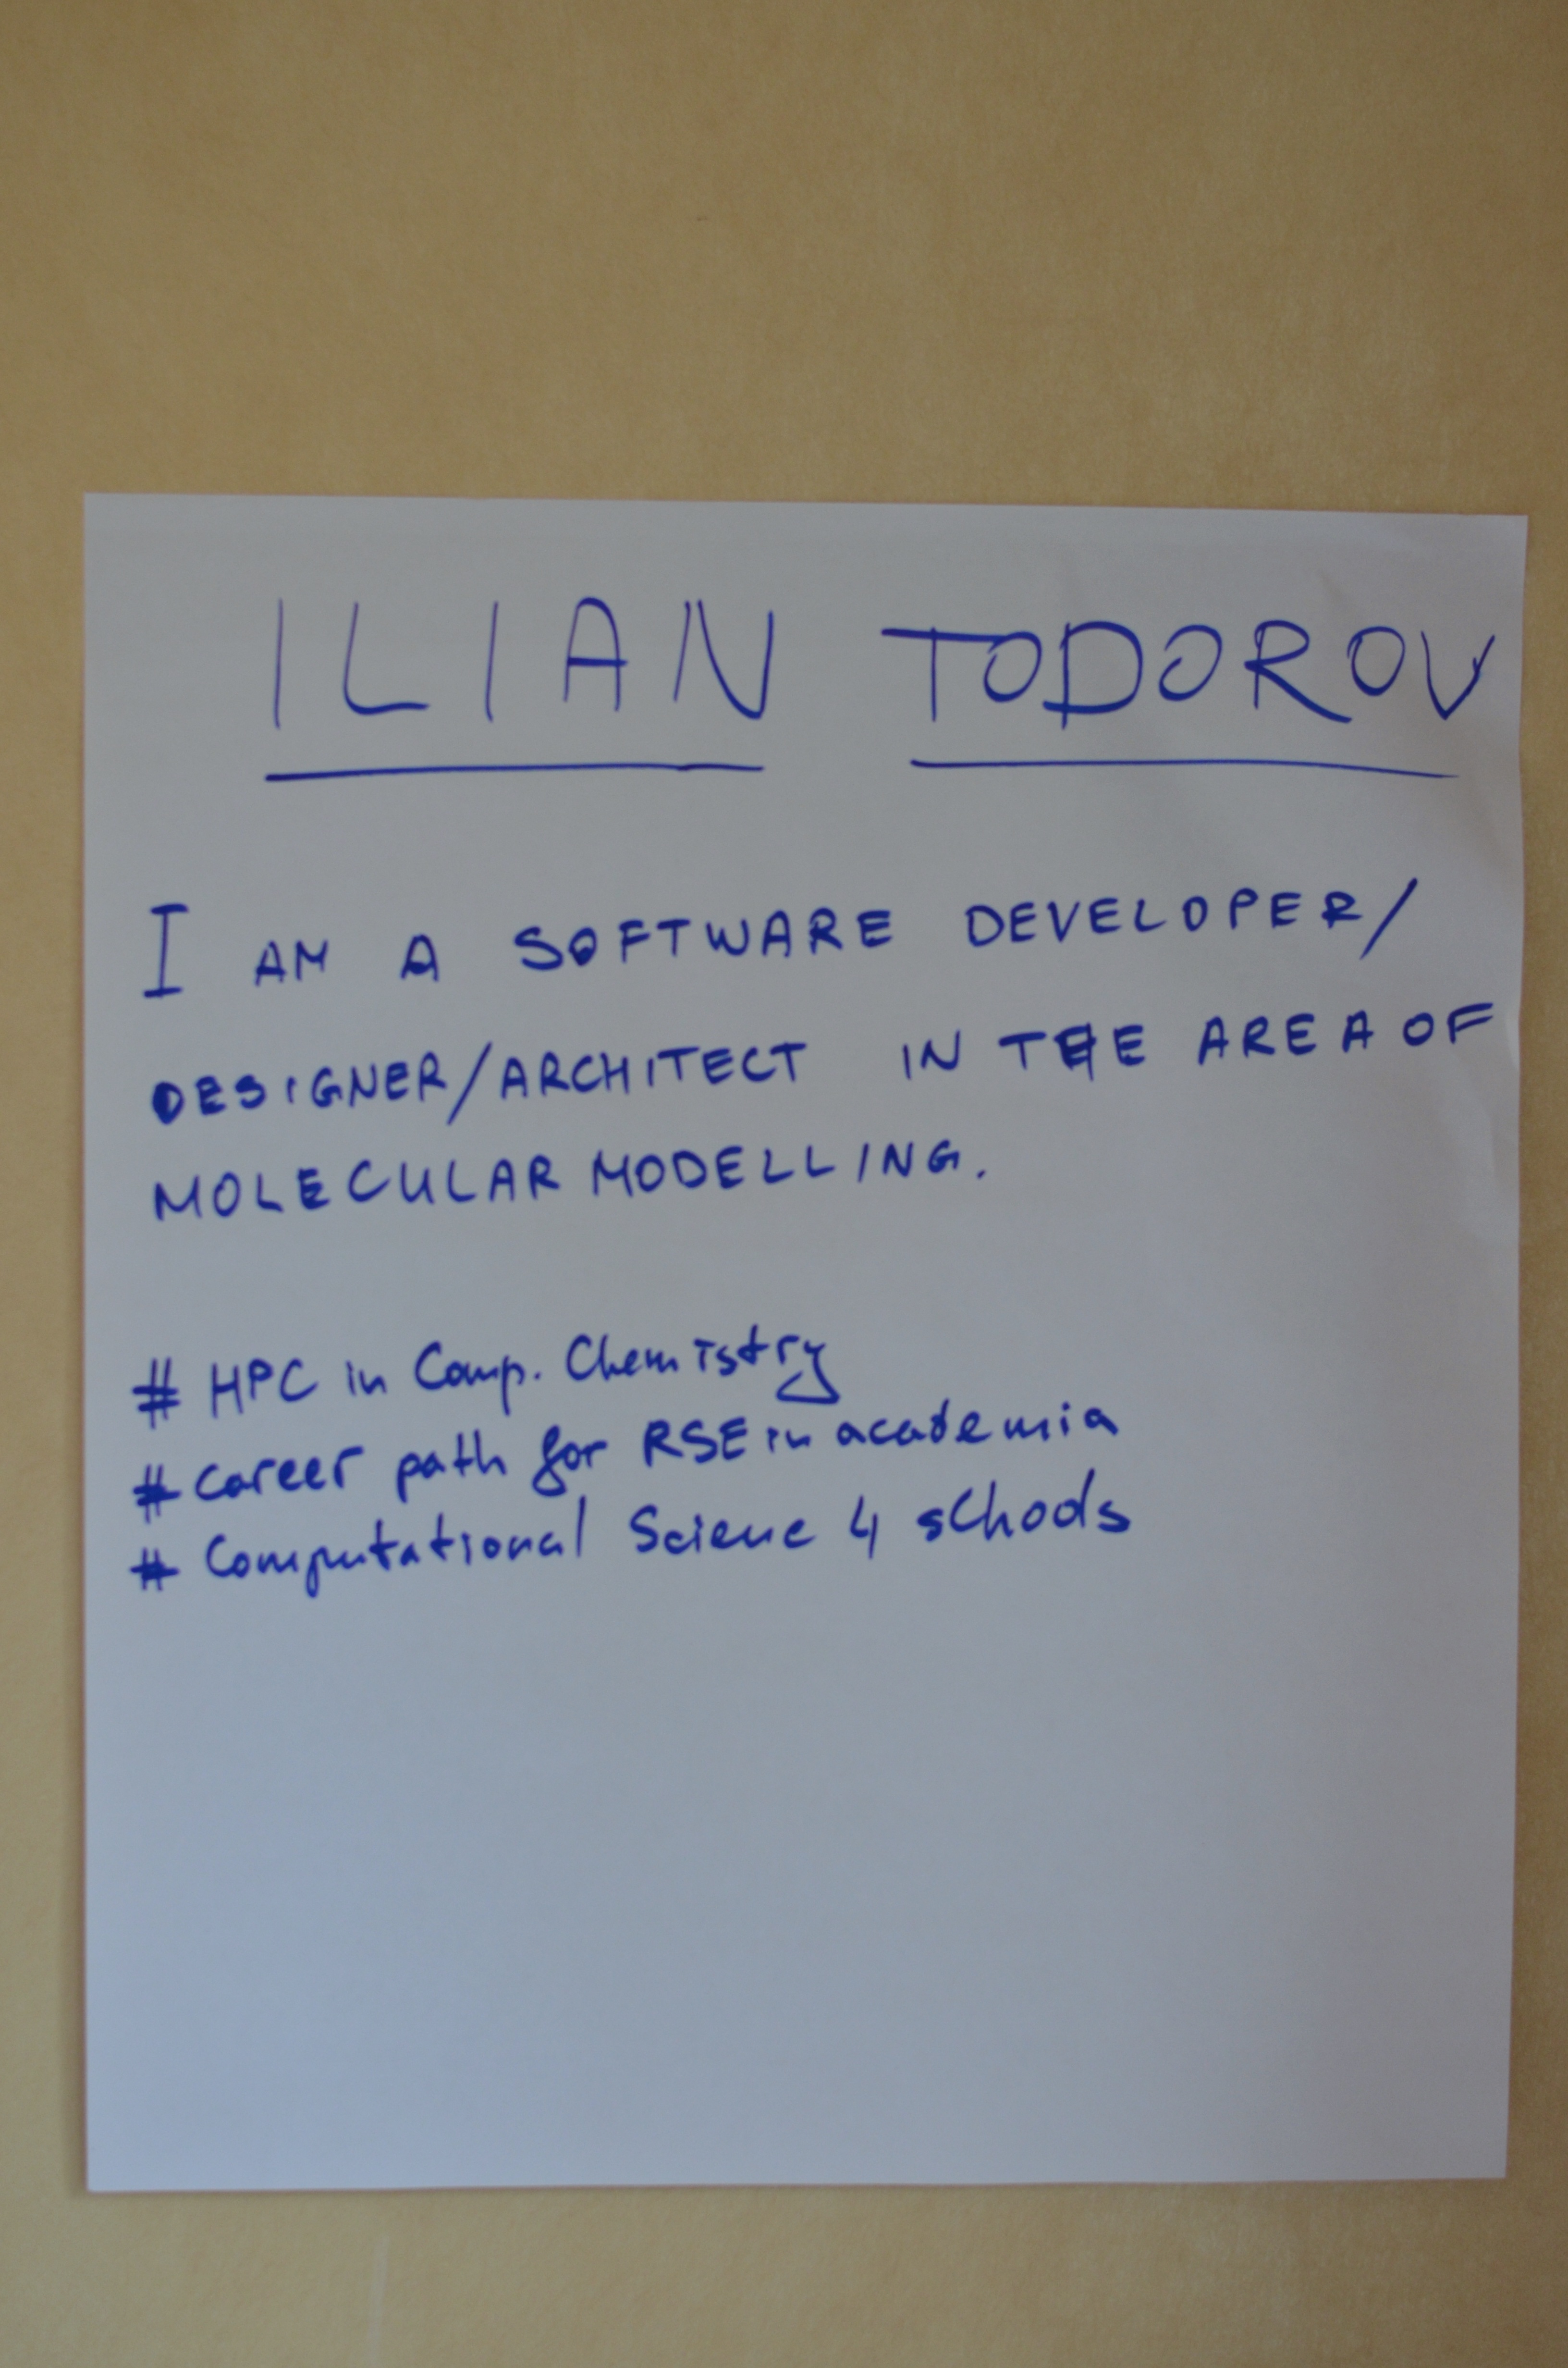 ILIAN TODOROV
I AM A SOFTWARE DEVELOPER/
DESIGNER/ARCHITECT IN THE AREA OF
MOLECULAR MODELLING.
# HPC in Comp. Chemistry
# career path for RSE in academia
# Computational Science 4 schools